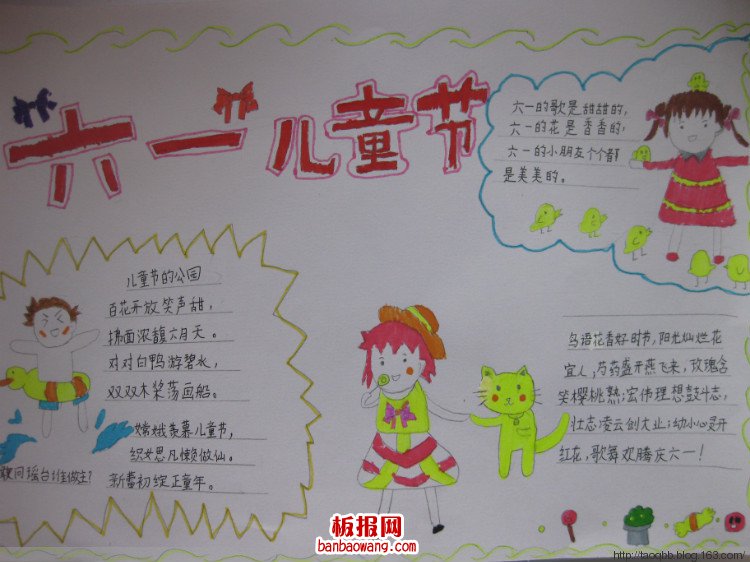 六一儿童节
六一的歌是甜甜的，
六一的花是香香的，
六一的小朋友个个都
是美美的。
儿童节的公园
百花开放笑声甜，
拂面浓馥六月天。
对对白鸭游碧水，
双双木桨荡画船。
嫦娥羡慕儿童节，
织女思凡懒做仙。
敢问瑶台谁做主？
新蕾初绽正童年。
鸟语花香好时节，阳光灿烂花
宜人，芍药盛开燕飞来，玫瑰含
笑樱桃熟；宏伟理想鼓斗志，
壮志凌云创大业；幼小心灵开
红花，歌舞欢腾庆六一！
板报网
banbaowang.com
http://taoqbb.blog.163.com/